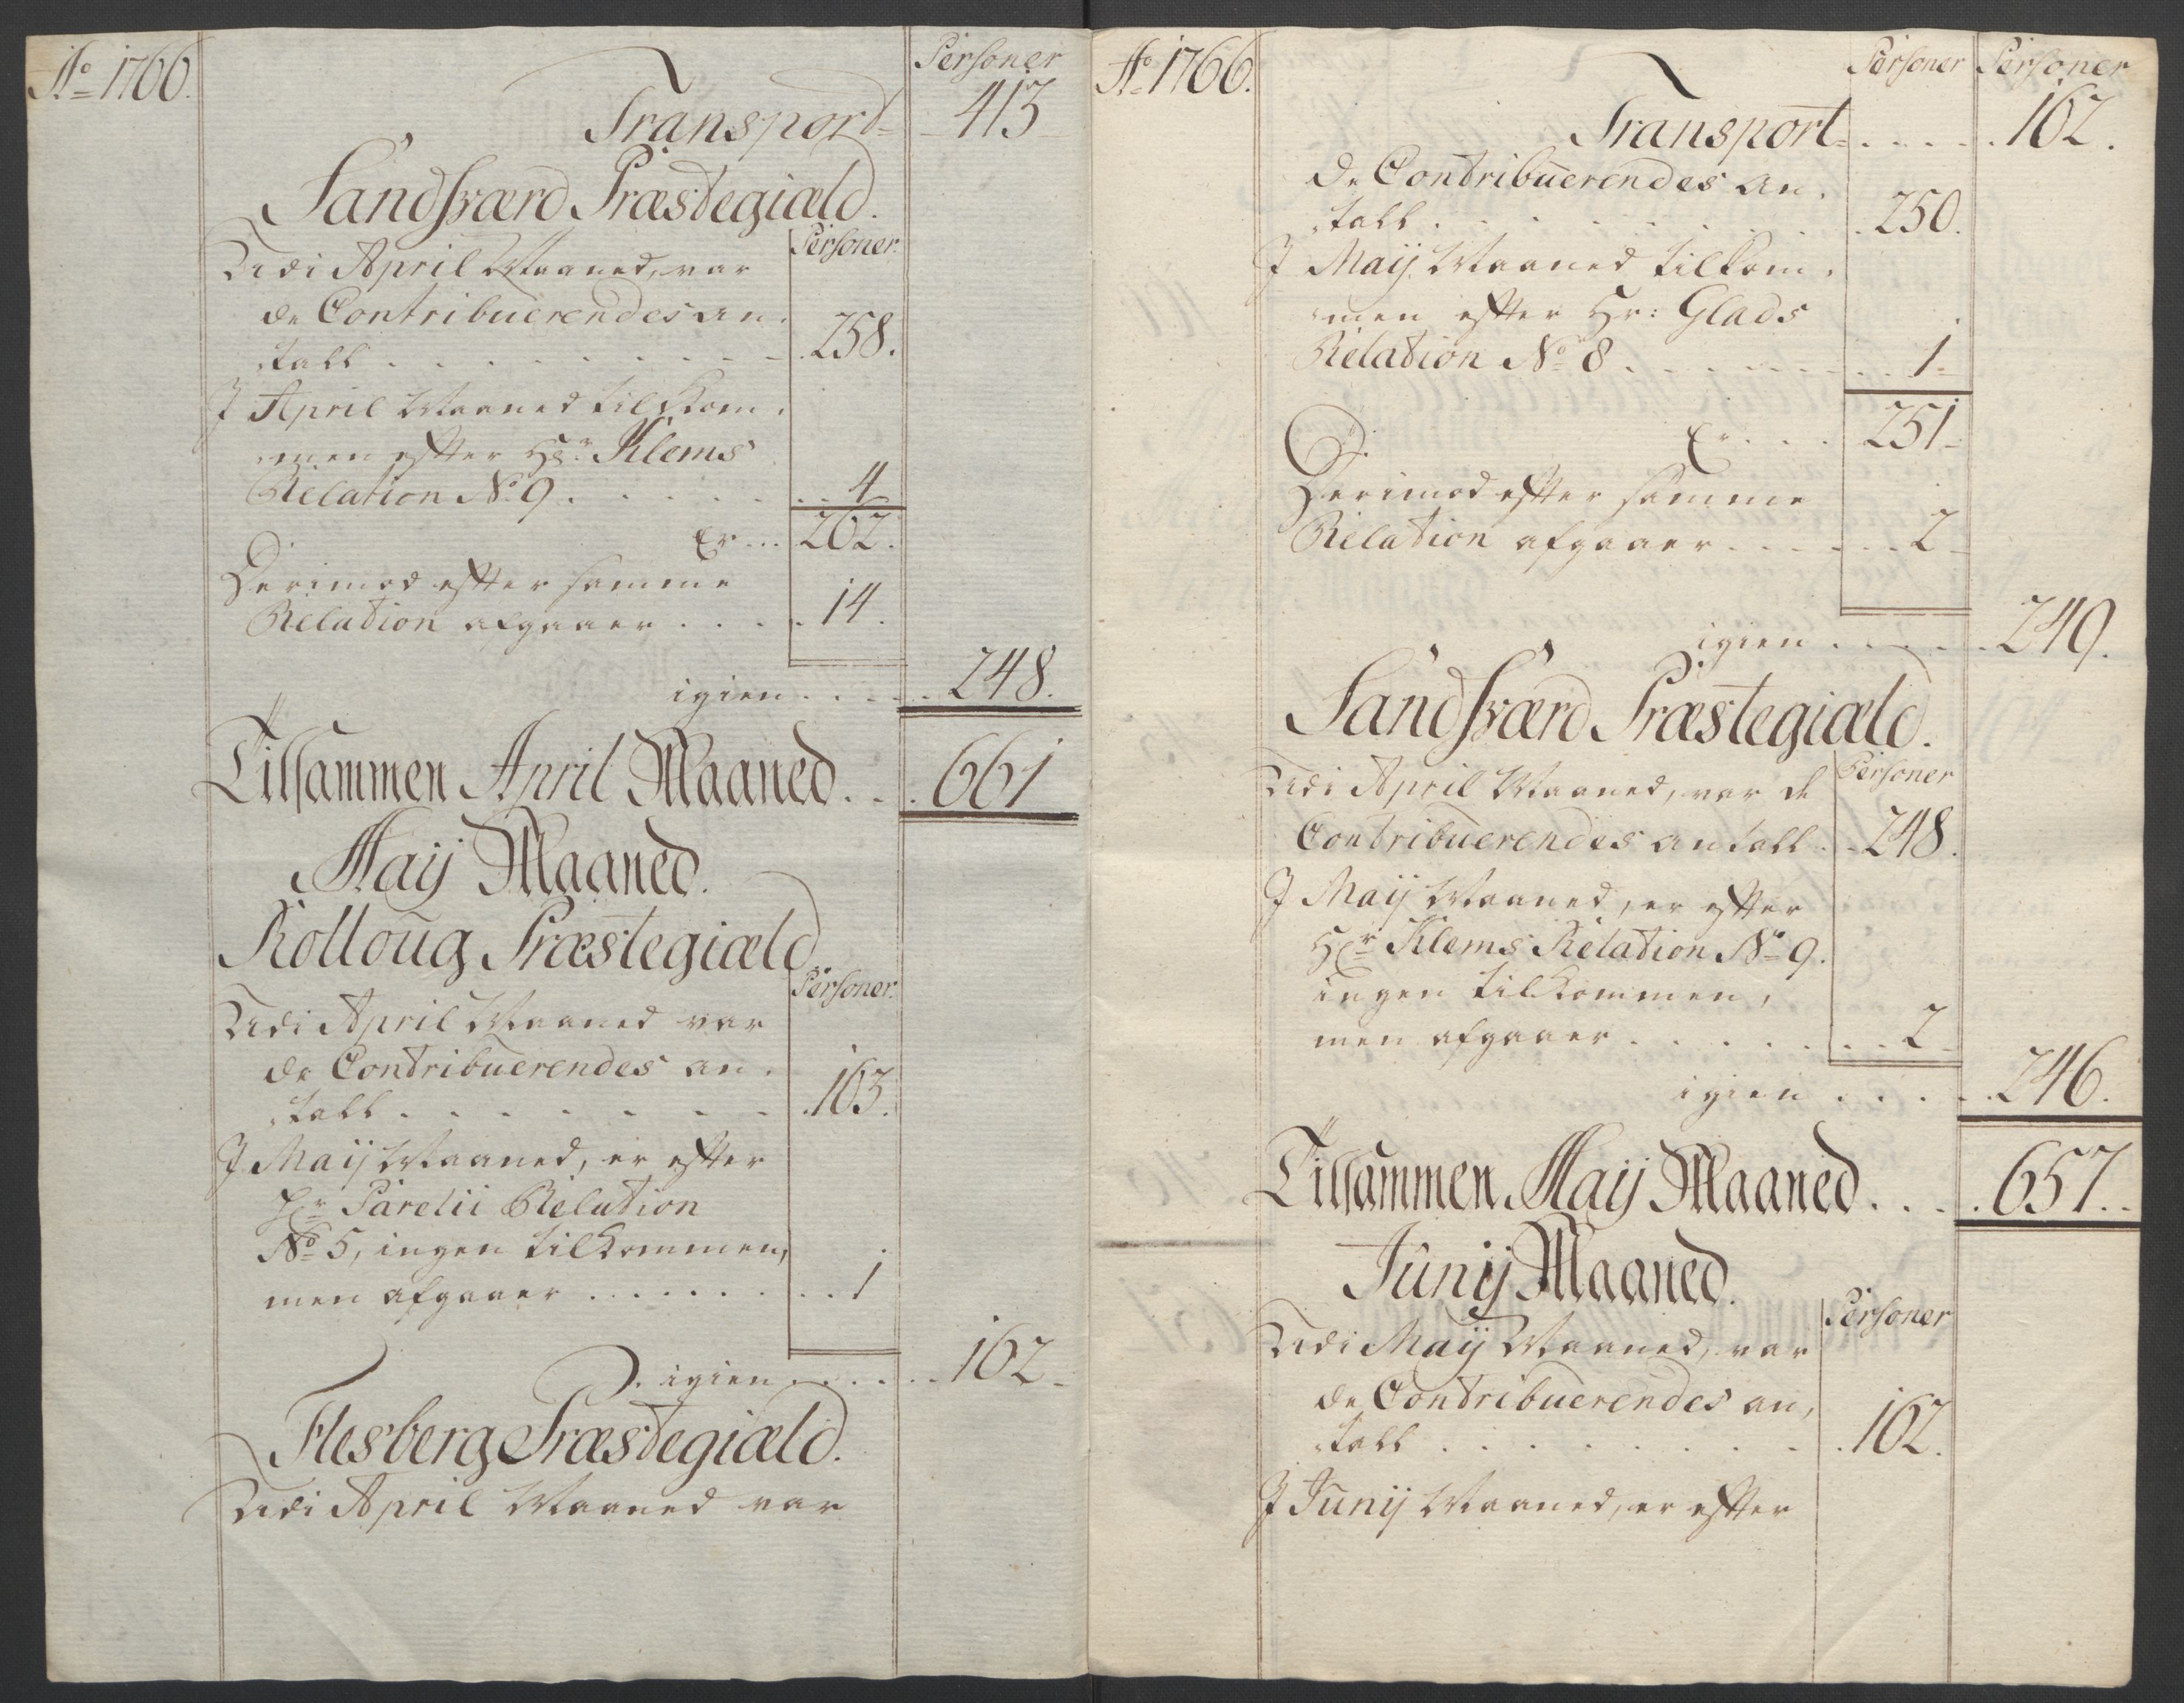 Ao 1766.
Personer
Transport 413
Sandsværd Præstegiæld.
Personer.
Udi April Maaned, var
de Contribuerendes an-
tall 258.
I April Maaned tilkom-
men efter Hr: Klems
Relation No 9. 4
Er 262.
Derimod efter samme
Relation afgaaer 14.
igien 248.
Tilsammen April Maaned 661
Maij Maaned.
Rolloug Præstegiæld.
Personer.
Udi April Maaned var
de Contribuerendes an-
tall 163.
I Maij Maaned, er efter
Hr Parelii Relation
No 5, ingen tilkommen,
men afgaaer 1
igien 162
Flesberg Præstegiæld.
Udi April Maaned var
Ao 1766.
Personer Personer
Transport 162.
de Contribuerendes an-
tall 250.
I Maij Maaned tilkom-
men efter Hr: Glads
Relation No 8 1
Er 251
Derimod efter samme
Relation afgaaer 2
igien 249.
Sandsværd Præstegiæld.
Personer
Udi April Maaned, var de
Contribuerendes antall 248.
I Maij Maaned, er efter
Hr Klems Relation No 9.
ingen tilkommen,
men afgaaer 2
igien 246.
Tilsammen Maij Maaned 657.
Junij Maaned.
Personer
Udi Maij Maaned, var
de Contribuerendes an-
tall 162.
I Junij Maaned, er efter